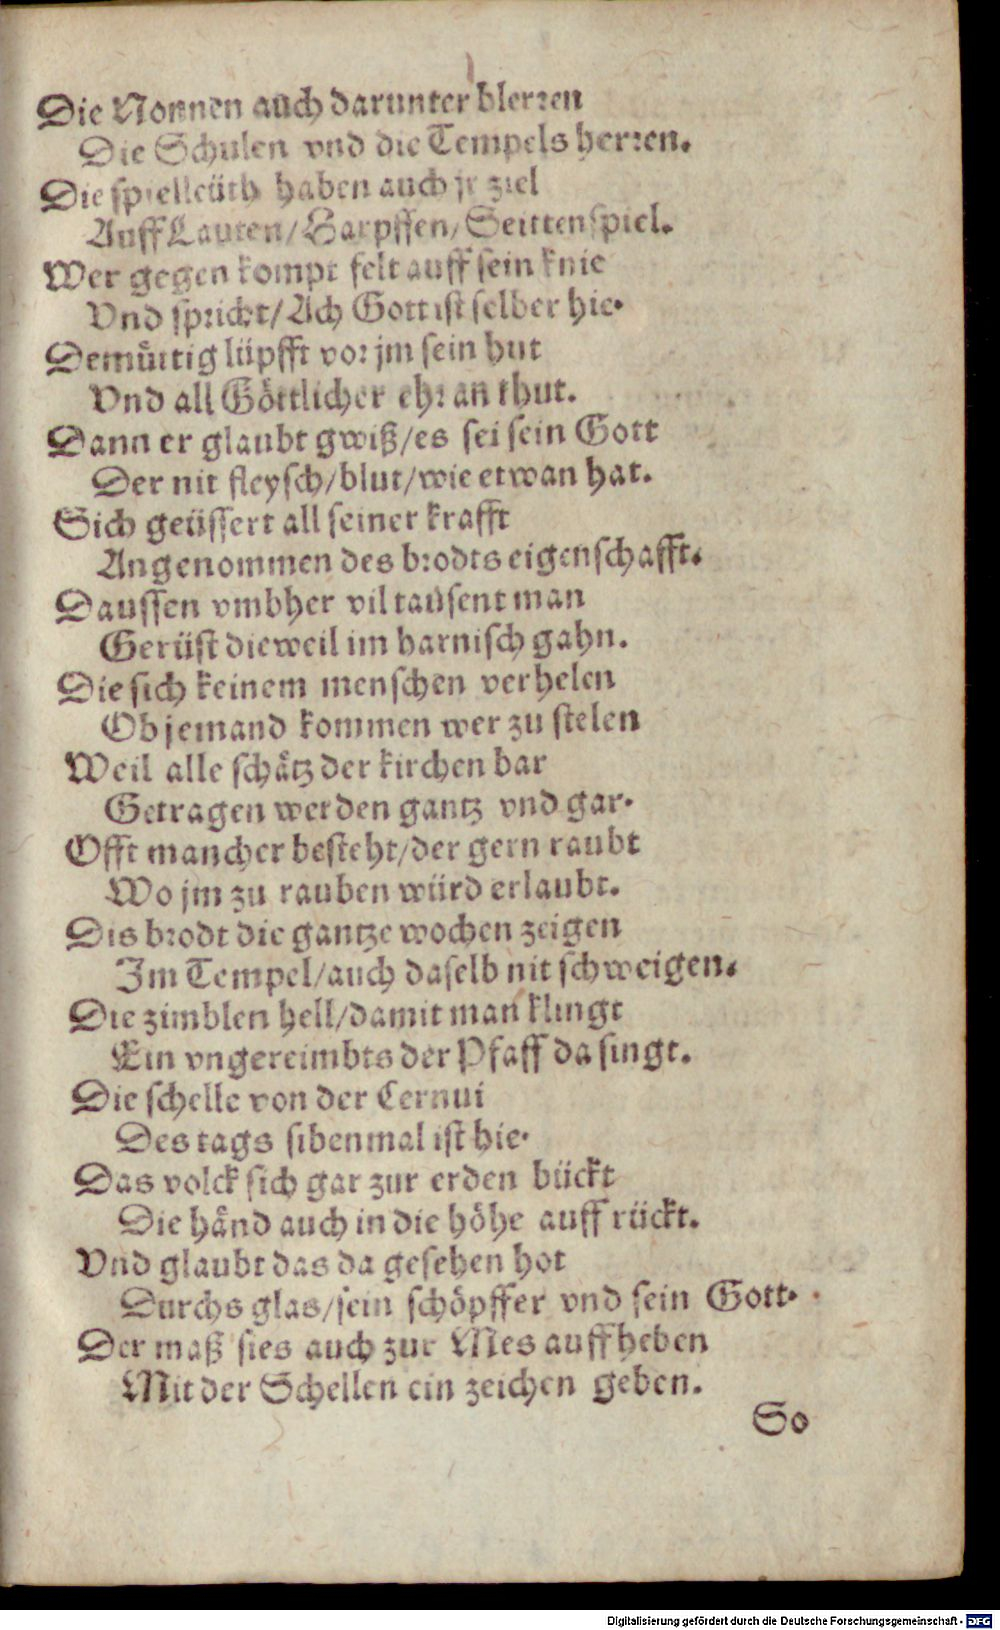 Die Nonnen auch darunter blerren
Die Schulen vnd die Tempels herren.
Die spielleüth haben auch jr ziel
Auff Lauten/Harpffen/Seittenspiel.
Wer gegen kompt felt auff sein knie
Vnd spricht/Ach Gott ist selber hie.
Demuͤttig lüpfft vor jm sein hut
Vnd all Göttlicher ehr an thut.
Dann er glaubt gwiß/es sei sein Gott
Der nit fleysch/blut/wie etwan hat.
Sich geüssert all seiner krafft
Angenommen des brodts eigenschafft.
Daussen vmbher vil tausent man
Gerüst dieweil im harnisch gahn.
Die sich keinem menschen verhelen
Ob jemand kommen wer zu stelen
Weil alle schaͤtz der kirchen bar
Getragen werden gantz vnd gar.
Offt mancher besteht/der gern raubt
Wo jm zu rauben würd erlaubt.
Dis brodt die gantze wochen zeigen
Im Tempel/auch daselb nit schweigen.
Die zimblen hell/damit man klingt
Ein vngereimbts der Pfaff da singt.
Die schelle von der Cernui
Des tags sibenmal ist hie.
Das volck sich gar zur erden bückt
Die haͤnd auch in die höhe auff rückt.
Vnd glaubt das da gesehen hot
Durchs glas/sein schöpffer vnd sein Gott.
Der maß sies auch zur Mes auffheben
Mit der Schellen ein zeichen geben.
So
Digitalisierung gefördert durch die Deutsche Forschungsgemeinschaft - DFG